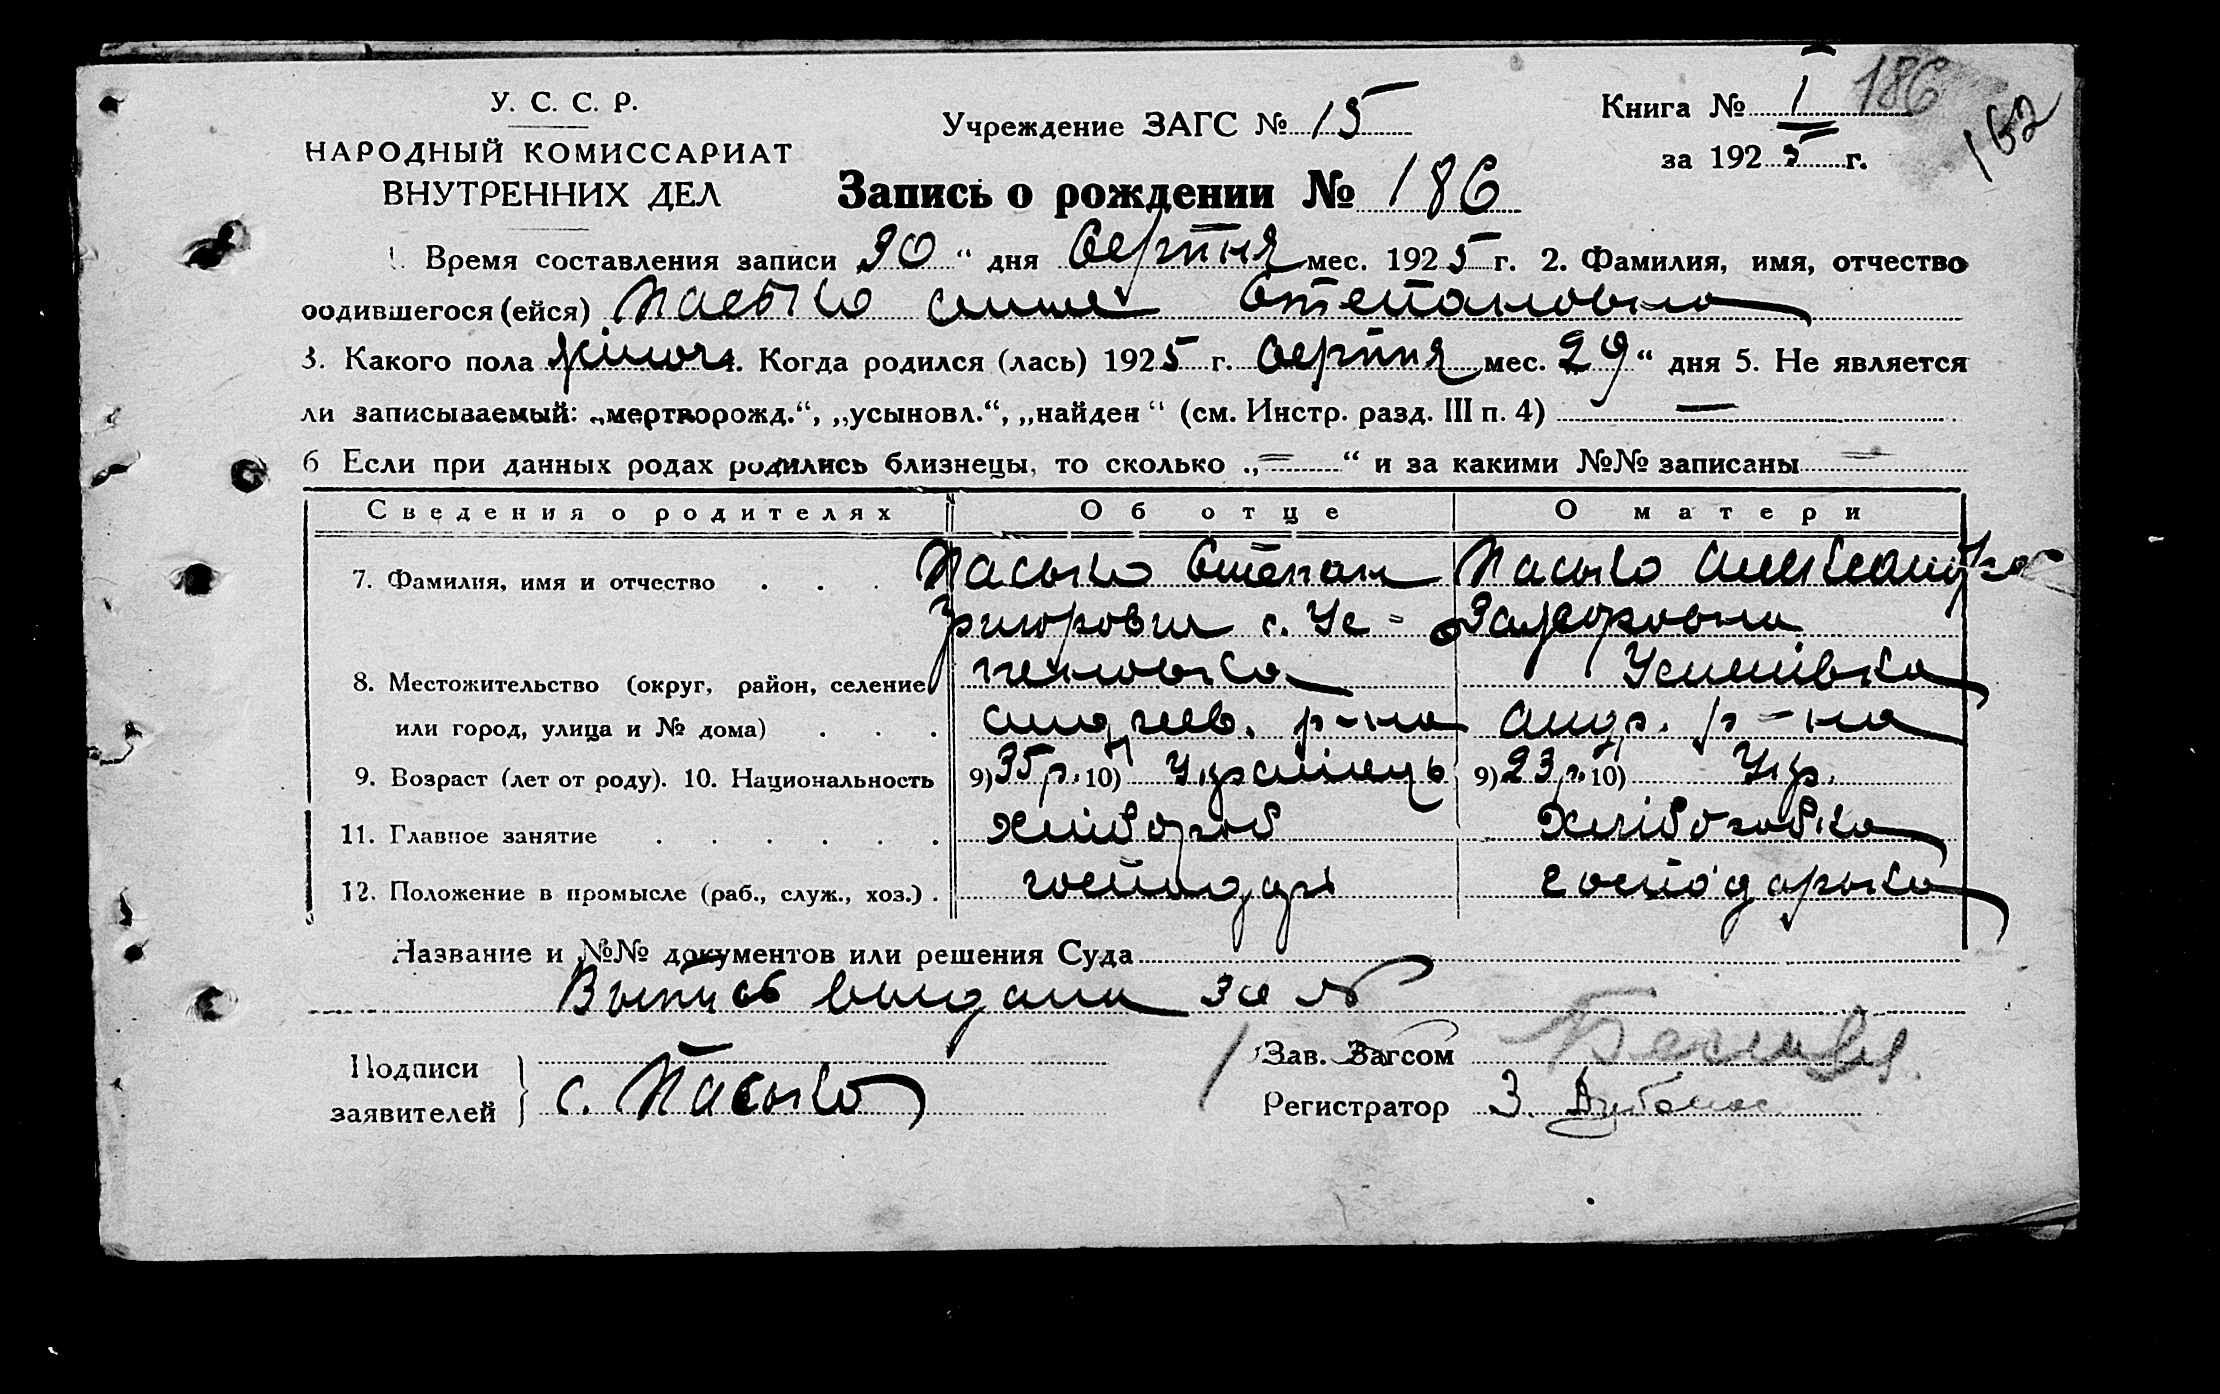 У. С. С. Р.
НАРОДНЫЙ КОМИССАРИАТ
ВНУТРЕННИХ ДЕЛ
Учреждение ЗАГС № 15
Книга № I 186
162
за 1925 г.
Запись о рождении № 186
1. Время составления записи 30 “ дня Серпня мес. 1925 г. 2. Фамилия, имя, отчество
родившегося (ейся) Пасько Степановна
3. Какого пола жіноч. 4. Когда родился (лась) 1925 г. Серпня мес. 29 “ дня 5. Не является
ли записываемый: „мертворожд.“, „усыновл.“, „найден“ (см. Инстр. разд. III п. 4) —
6 Если при данных родах родились близнецы, то сколько „ = “ и за какими №№ записаны =
Сведения о родителях Об отце О матери
7. Фамилия, имя и отчество . . . Пасько Степан Пасько
Григорович с. Ус-
8. Местожительство (округ, район, селение пеновка Успенівка
или город, улица и № дома) . . . андреев. р-на андр. р-на
9. Возраст (лет от роду). 10. Национальность 9) 35 р. 10) Українець 9) 23 р. 10) Укр.
11. Главное занятие . . . . . . хлібороб хліборобка
12. Положение в промысле (раб., служ., хоз.) . господарь господарька
Название и №№ документов или решения Суда
Выпись выдана за №
Подписи
заявителей } с. Пасько
Зав. Загсом
Регистратор З.